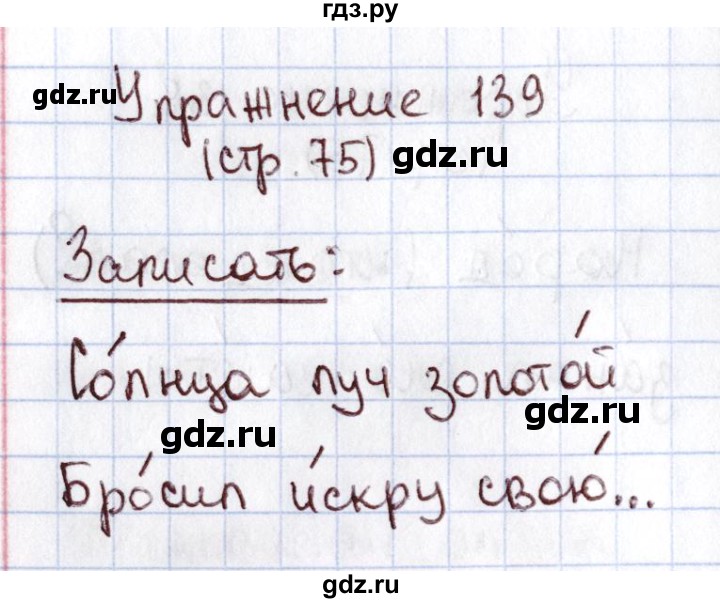 гдз.ру
Упражнение 139
gdz.ru
(стр. 75) gdz.ru
Записать:
Со́лнца луч золото́й
gdz.ru
gdz.ru
Бро́сил и́скру свою́...
gdz.ru